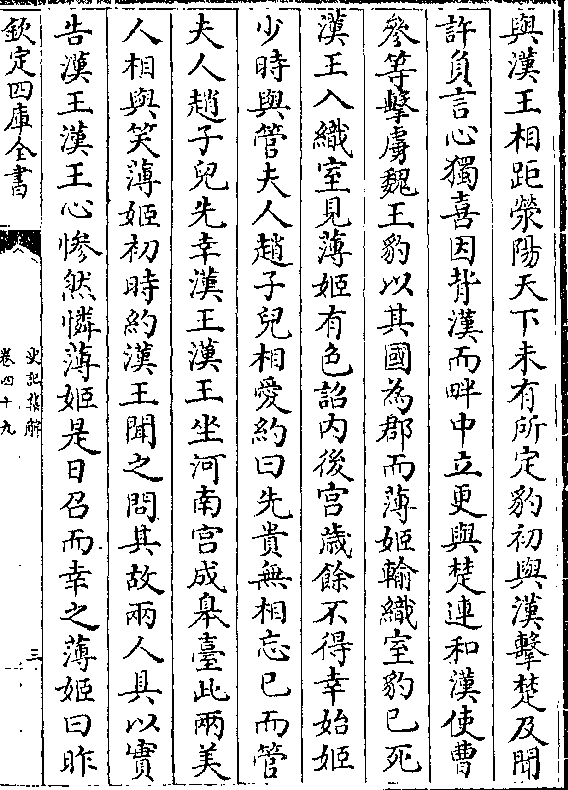 與漢王相距滎陽天下未有所定豹初與漢擊楚及聞
許負言心獨喜因背漢而畔中立更與楚連和漢使曹
參等擊虜魏王豹以其國為郡而薄姬輸織室豹已死
漢王入織室見薄姬有色詔內後宫歲餘不得幸始姬
少時與管夫人趙子兒相愛約曰先貴無相忘已而管
夫人趙子兒先幸漢王漢王坐河南宫成臯臺此兩美
人相與笑薄姬初時約漢王聞之問其故兩人具以實
告漢王漢王心慘然憐薄姬是日召而幸之薄姬曰昨
欽定四庫全書
史記集解
卷四十九
三